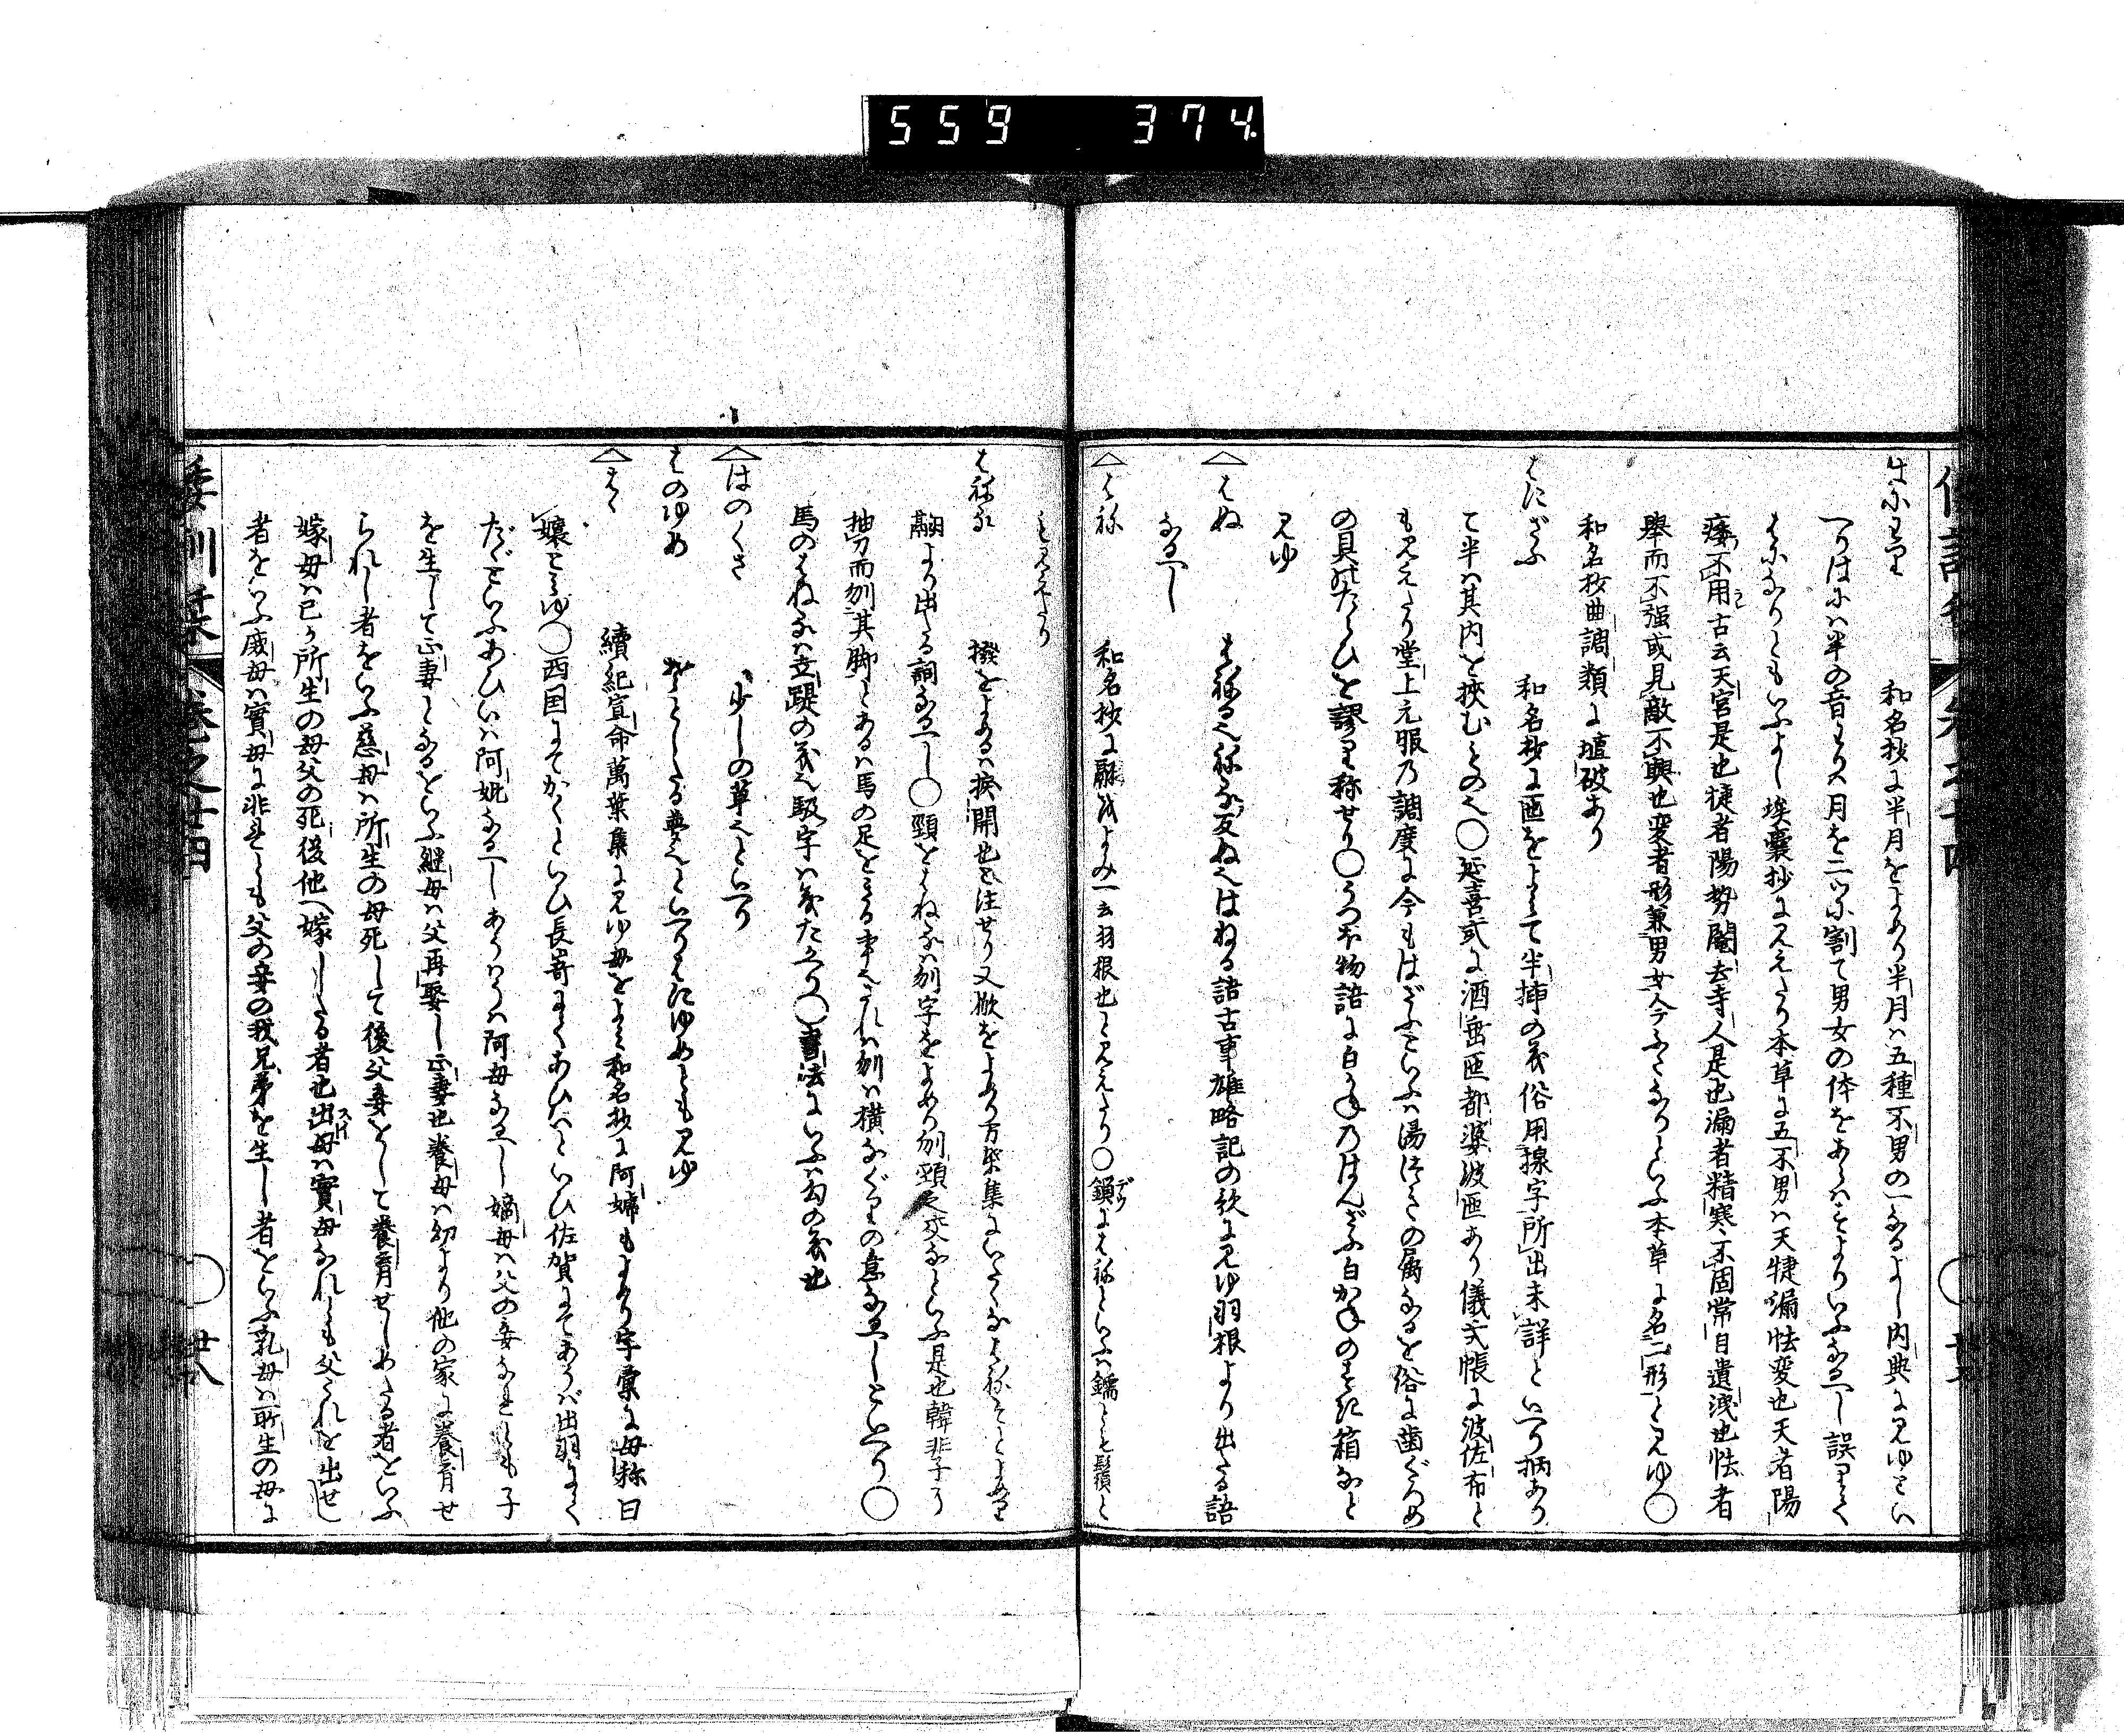 559 374.
はにわり 和名抄に半月をよめり半月ハ五種不男の一なるよし内典に見ゆとい
へりはにハ半の音わり八月を二つに割て男女の体をあらハせよりいふなるへし誤りて
はになりともいふよし埃嚢抄に見えたり本草に五不男ハ天犍漏怯変也天者陽
痿不用古云天宦是也犍者陽勢閹去寺人是也漏者精寒不固常自遺洩也怯者
舉而不强或見敵不興也変者形兼男女今ふたなりといふ本草に名二形と見ゆ○
和名抄曲調類に壇破あり
はにざふ 和名抄に匜をよみて半挿の義俗用掾字所出未詳といへり柄あり
て半ハ其内を挾むもの也○延喜式に酒垂匜都婆波匜あり儀式帳に波佐布と
も見えたり堂上元服乃調度に今もはざふといふハ湯つきの属なるを俗に歯ぐろめ
の具のたらひを謬り称せり○うつほ物語に白かねのはんざふ白かねのすき箱なと
見ゆ
△はぬ はねる也ねる反ぬ也はねる語古事雄略記の歌に見ゆ羽根より出たる語
なるへし
△はね 和名抄に翮をよみ一云羽根也と見えたり○鎖にはねといふハ鑐とも鬚と
も見えたり
はねる 撥をよめるハ捩開也と注せり又撥をよめり万葉集にいたくなはねそとよめり
翮より出たる詞なるへし○頸をはねるハ刎字をよめり刎頸之交なといふ是也韓非子に
抽刀而刎其脚とあるハ馬の足をきる事也されハ刎ハ横なぐりの意なるへしといへり○
馬のはねるハ立踶の義也駇字ハ義たかへり○書法にいふハ勾の義也
△はのくさ 少しの草也といへり
はのゆめ おとしたる夢也といへりはにゆめとも見ゆ
△はゝ 續紀宣命萬葉集に見ゆ母をよみ和名抄に阿嬭もよめり字彙に母称曰
嬢と見ゆ○西国にてかくといひ長嵜にてあひへといひ佐賀にてあうバ出羽にて
だゞといふあひいハ阿妣なるへしあうハうハ阿母なるへし嫡母ハ父の妾なれとも子
を生して正妻となるをいふ継母ハ父再娶し正妻也養母ハ幼より他の家に養育せ
られし者をいふ慈母ハ所生の母死して後父妾をして養育せしめたる者をいふ
嫁母ハ己か所生の母父の死後他へ嫁したる者也出母ハ實母なれとも父これを出せし
者をいふ庶母ハ實母に非れとも父の妾の我兄弟を生し者をいふ乳母ハ所生の母に
倭訓栞 巻之廿四 ○ 廿八